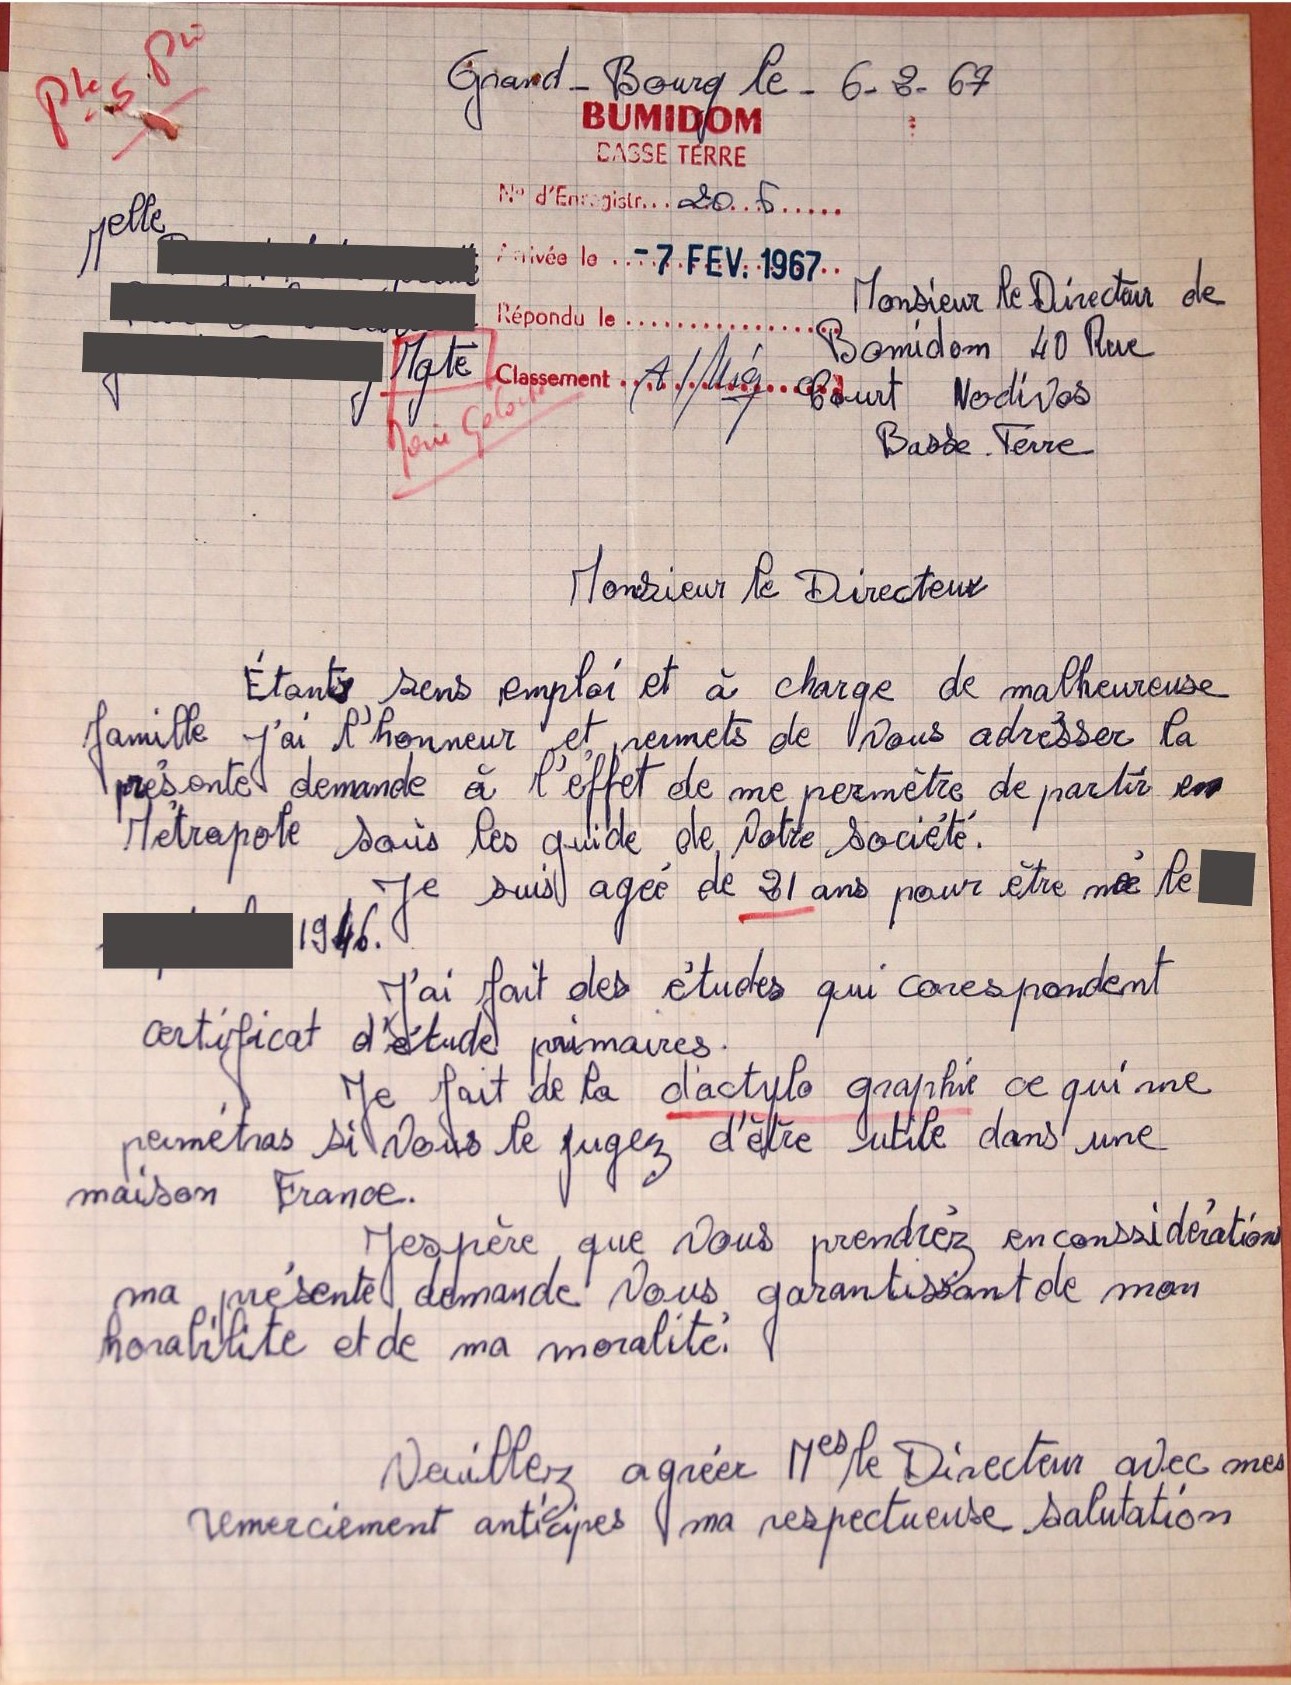 Grand-Bourg le - 6-2-67
BUMIDOM
BASSE TERRE
N° d'Enregistr... 20.5
Arrivée le -7 FEV. 1967
Répondu le
Classement
Melle
Mgte
Monsieur le Directeur de
Bomidom 40 Rue
Court Nodivos
Basse-Terre
Monsieur le Directeur
Étant sens emploi et à charge de malheureuse
famille j'ai l'honneur et permets de vous adresser la
présente demande à l'éffet de me permètre de partir en
Métrapole sous les guide de votre société.
Je suis ageé de 21 ans pour être née le
1946.
J'ai fait des études qui corespondent
certificat d'étude primaires.
Je fait de la dactylo graphie ce qui me
permétras si vous le jugez d'être utile dans une
maison France.
J'espère que vous prendrèz en conssidération
ma présente demande vous garantissant de mon
horabilité et de ma moralité.
Veuillez agréer Mes le Directeur avec mes
remerciement anticipes ma respectueuse salutation